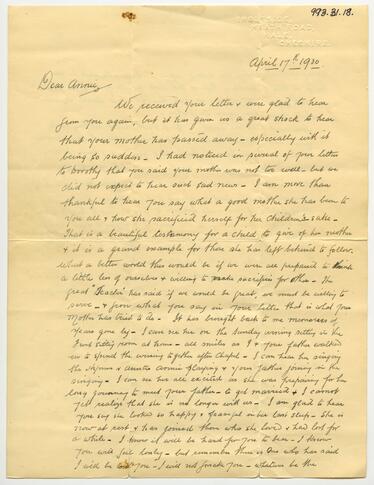 993.31.18.
CHESHIRE.
April 17th 1930
Dear Annie,
We received your letter & were glad to hear
from you again, but it has given us a great shock to hear
that your mother has passed away - especially with it
being so sudden - I had noticed in several of your letters
to Dorothy that you said your mother was not too well - but we
did not expect to hear such sad news - I am more than
thankful to hear you say what a good mother she has been to
you all & how she sacrificed herself for her children's sake -
That is a beautiful testimony for a child to give of her mother
& it is a grand example for those she has left behind to follow.
What a better world this would be if we were all prepared to think
a little less of ourselves & willing to make sacrifices for others - The
great Teacher has said if we would be great, we must be willing to
serve - & from what you say in your letter that is what your
Mother has tried to do - It has brought back to me memories of
years gone by - I can see her on the Sunday evening sitting in the
front sitting room at home - all smiles as I & your father walked
in to spend the evening together after Chapel - I can hear her singing
the hymns & Auntie Annie playing & your father joining in the
singing - I can see her all excited as she was preparing for her
long journey to meet your father - & get married & I cannot
yet realize that she is no longer with us - I am glad to hear
you say she looked so happy & tranquil in her last sleep - She is
now at rest & has joined those who she loved & had lost for
a while - I know it will be hard for you to bear - I know
you will feel lonely - but remember there is One who has said
I will be with you - I will not forsake you - whatever be the